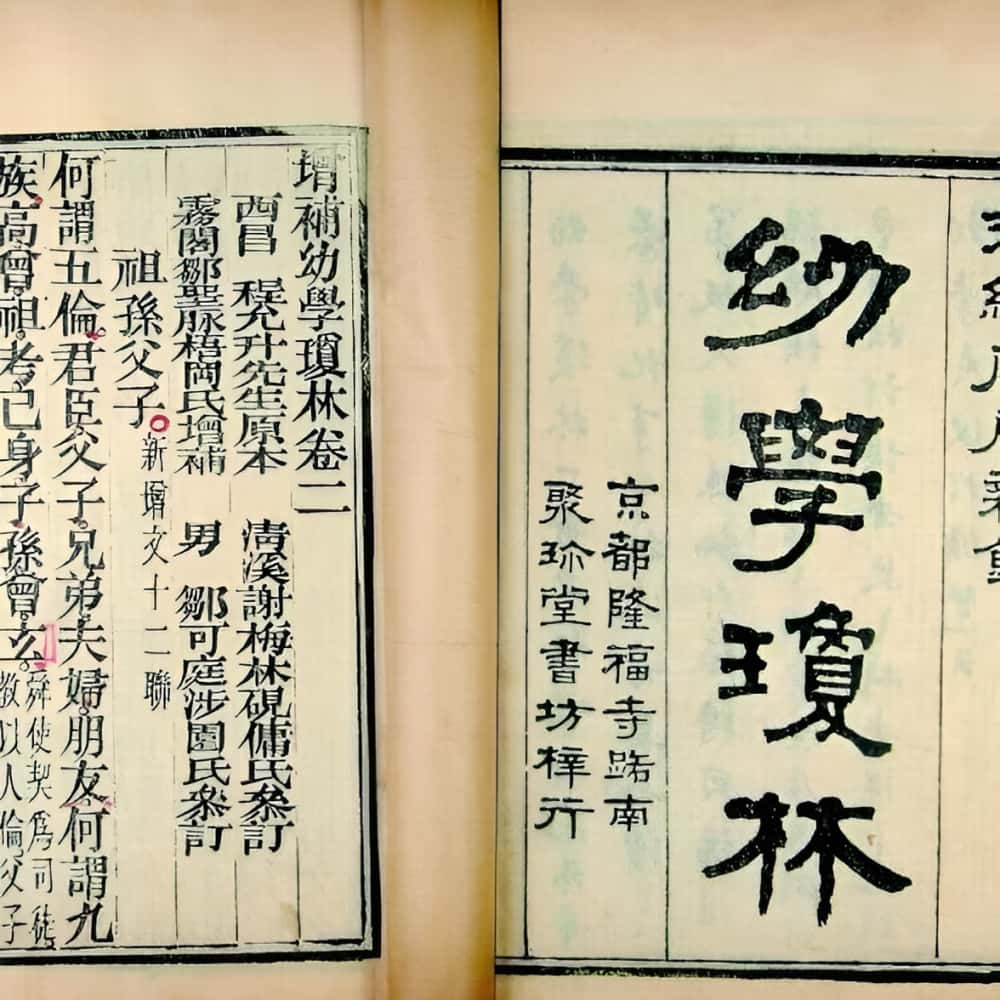 幼學瓊林
京都隆福寺路南
聚珎堂書坊梓行
增補幼學瓊林卷二
西昌 程允升先生原本 清溪謝梅林硯傭氏叅訂
霧閣鄒聖脉梧岡氏增補 男 鄒可庭涉園氏叅訂
祖孫父子 新增文十二聯
何謂五倫君臣父子兄弟夫婦朋友何謂九
族高曾祖考己身子孫曾玄
舜使契爲司徒
教以人倫父子